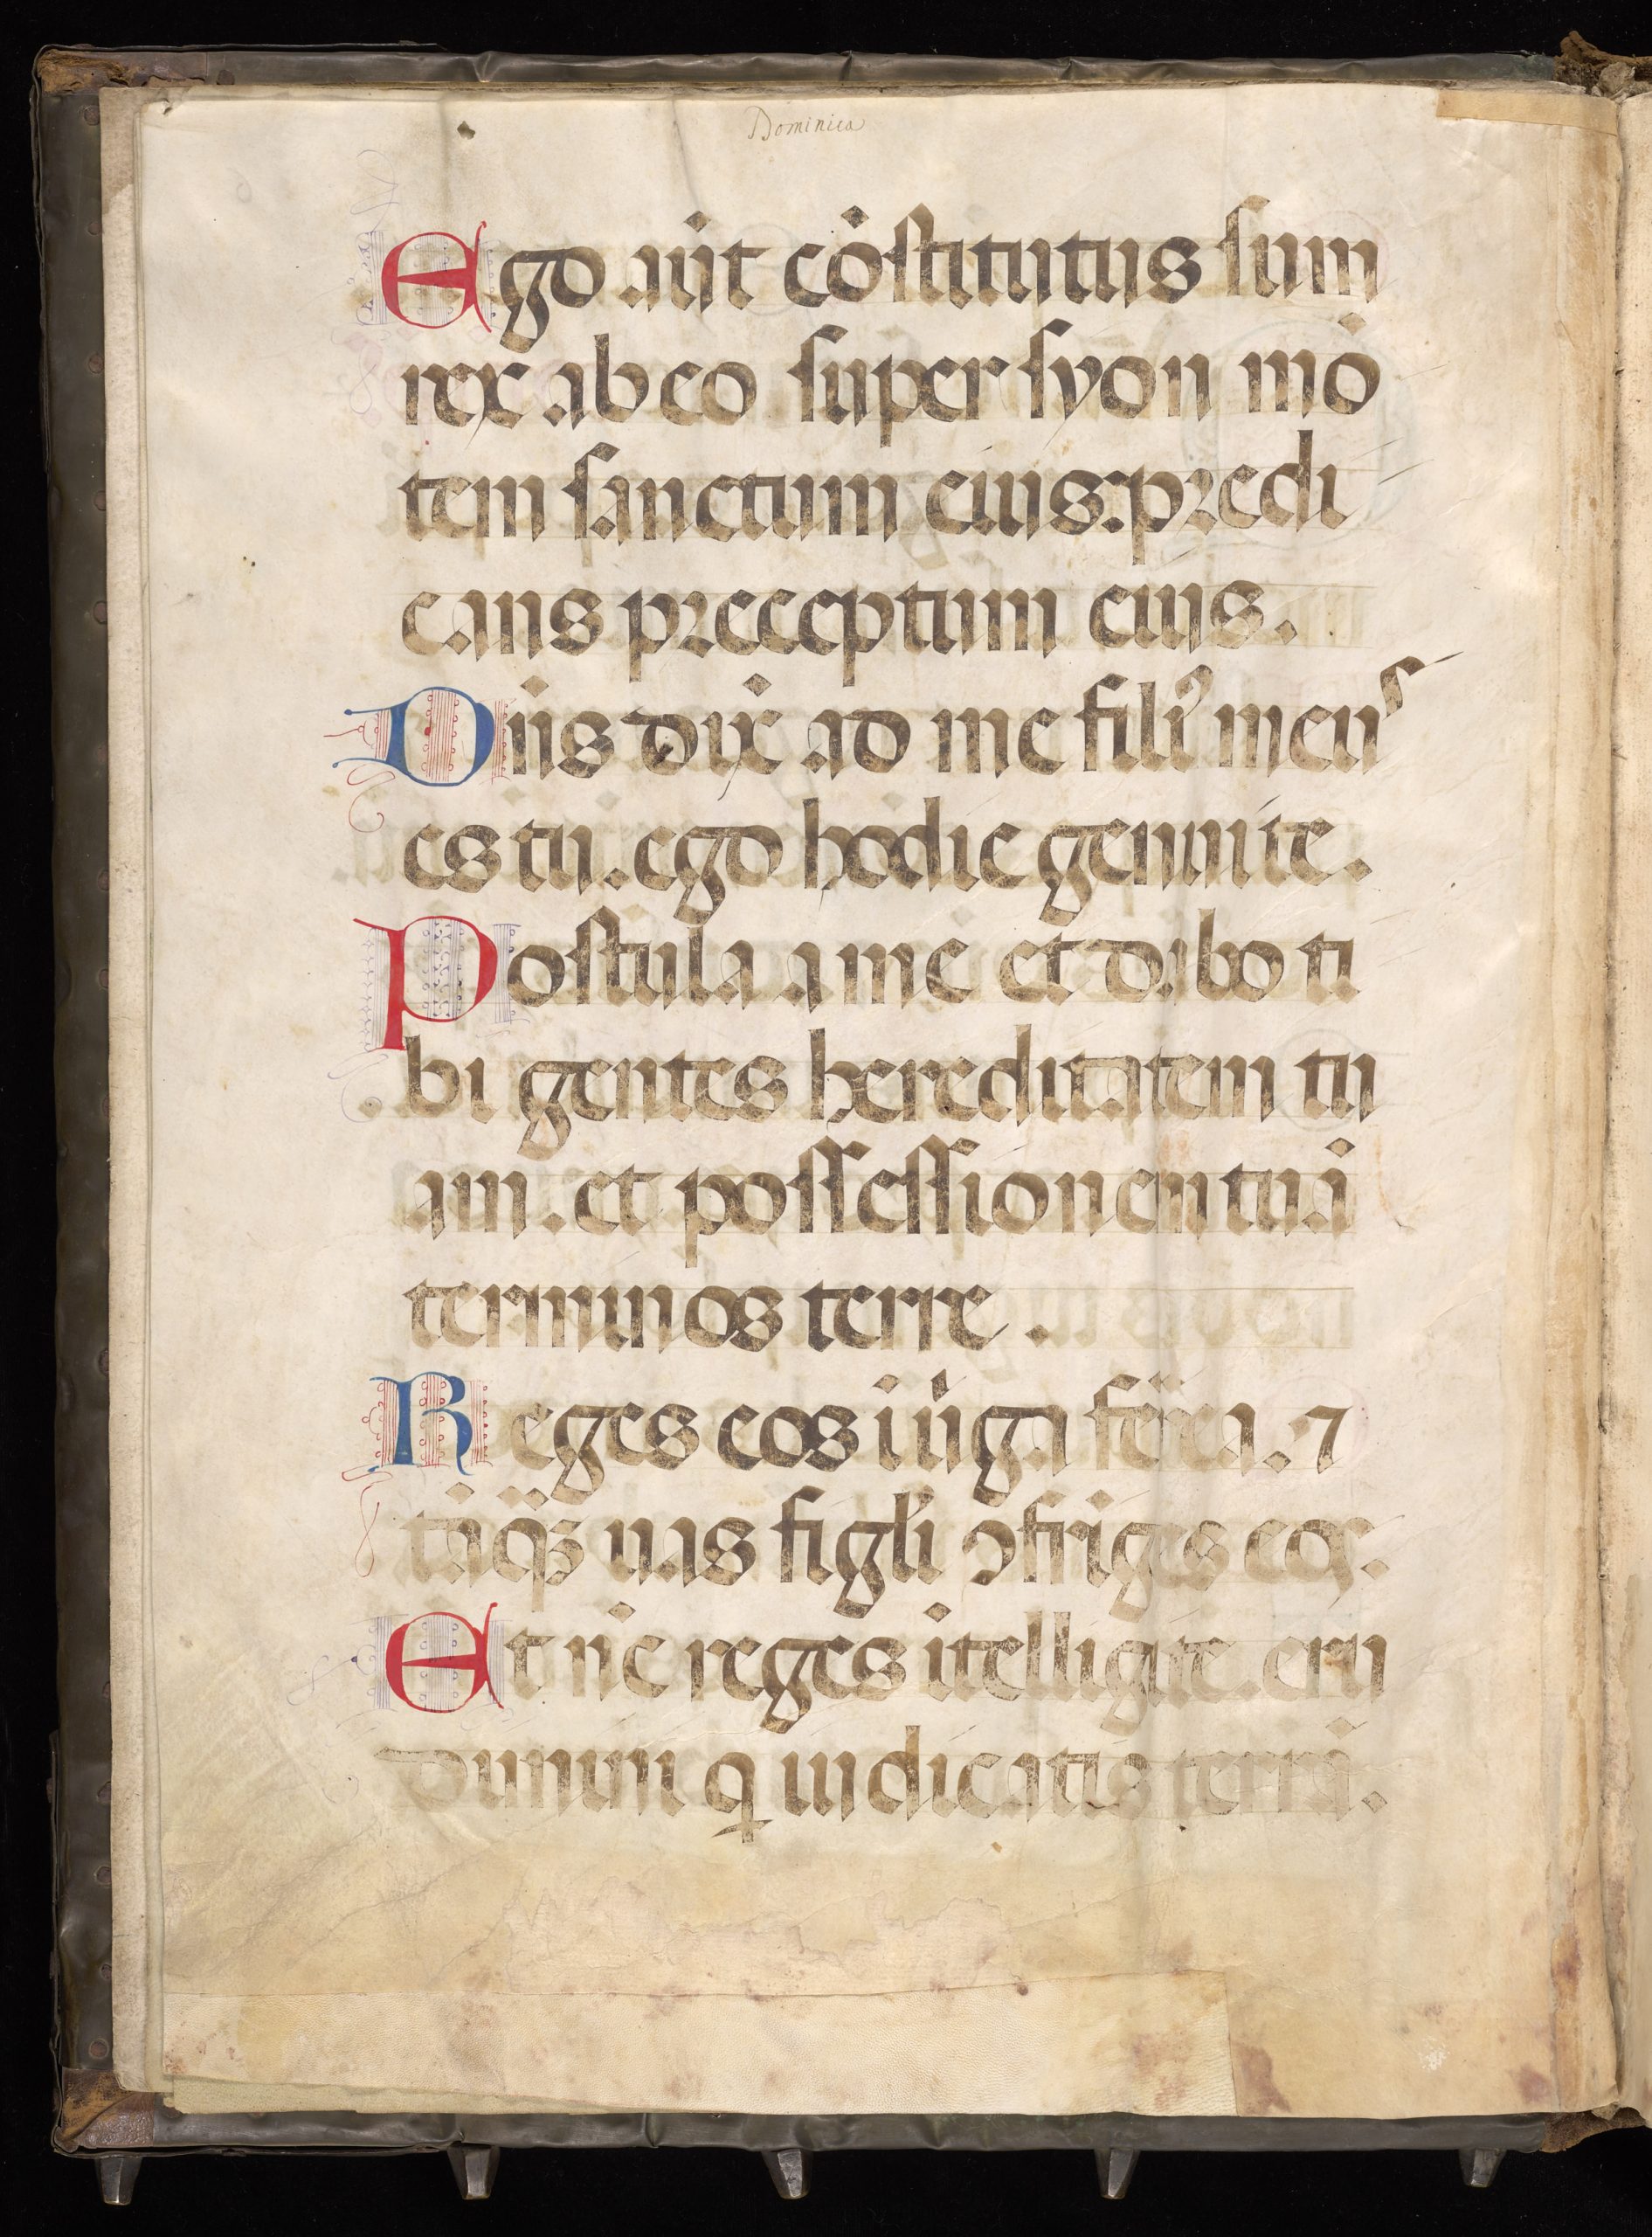 Dominica
Ego aūt cōstitutus sum
rex ab eo super syon mō
tem sanctum eius: predi
cans preceptum eius.
Dn̄s dix̄ ad me filiꝰ meus
es tu. ego hodie genui te.
Postula a me et dabo ti
bi gentes hereditatem tu
am. et possessionem tuā
terminos terre.
Reges eos ī v̄ga fērea. ⁊
tāqꝫ uas figli ꝯfrīges eoꝝ.
Et nūc reges ītelligite. eru
dimini q̄ iudicatis terrā.